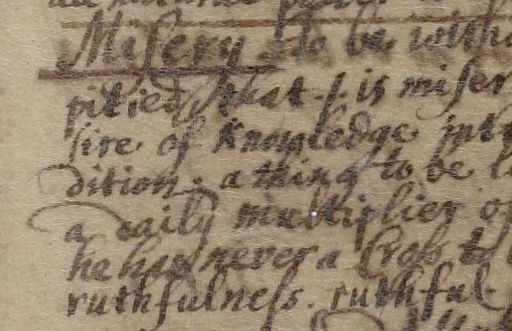 Misery to be witho
pitied, that is miser
sire of knowledge int
dition; a thing to be l
a daily multiplier of
he hath never a Cross to
ruthfulness. ruthful